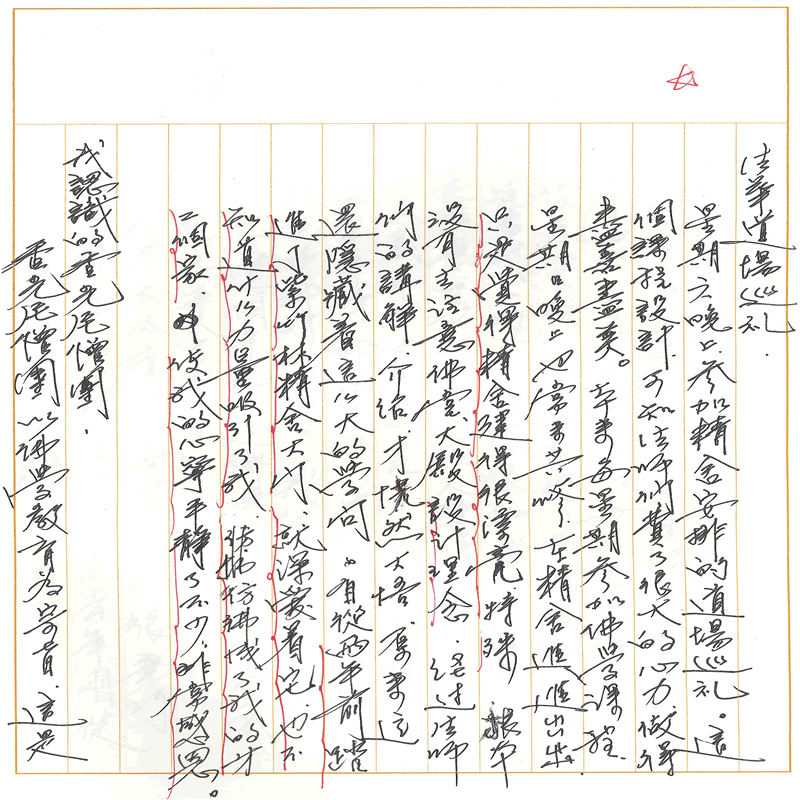 法華道場巡礼.
星期六晚上.參加精舍安排的道場巡礼。這
個課程設計.可知法師們費了很大的心力做得
盡善盡美。年來每星期參加佛學課程.
星期日晚上也常來共修.在精舍進進出出
只覺得精舍建得很漂亮特殊.根本
沒有去注意佛堂大殿設計理念.經過法師
們的講解.介紹.才恍然大悟.原來這
裏隱藏著這么大的學問.自從兩年前踏
進了紫竹林精舍大門.就深愛著它.也不
知道什么力量吸引了我.精舍彷彿成了我的才
二個家.使我的心寧平靜了不少.非常感恩。
我認識的香光尼僧團.
香光尼僧團以佛學教育為宗旨.這是